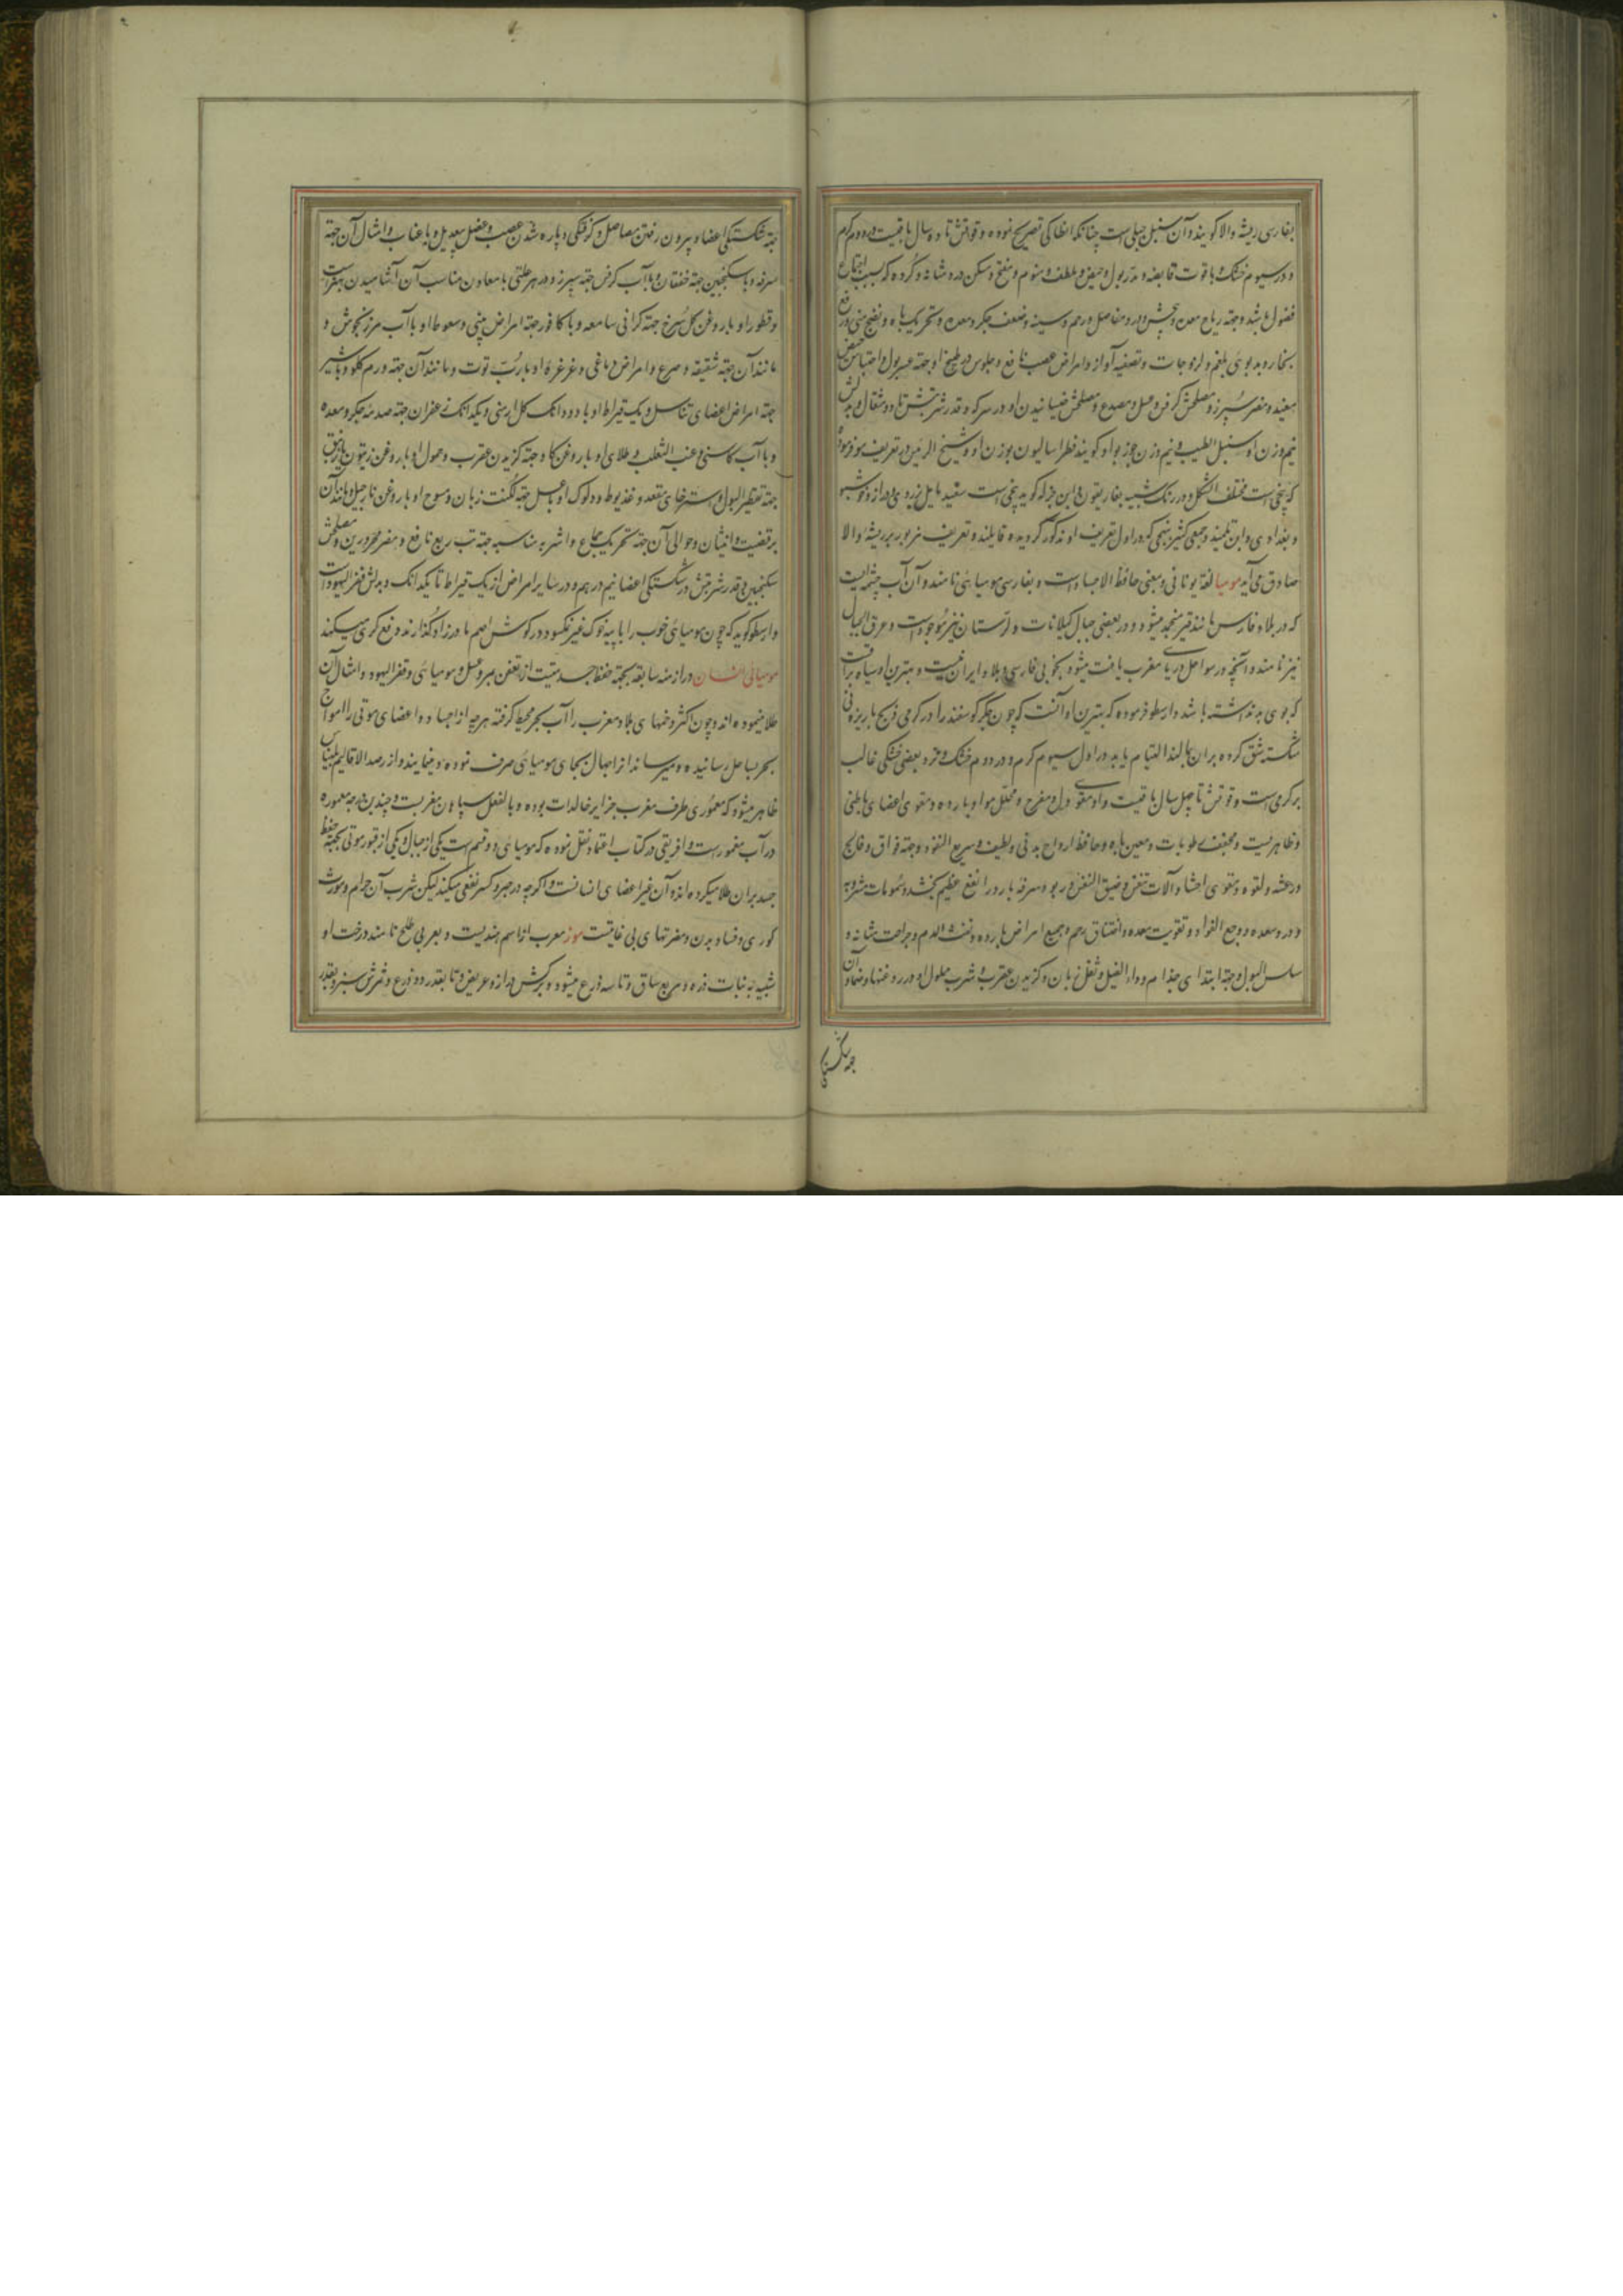 بفارسی ریشه والا کویند و آن سنبل جبلی است چنانکه انطاکی تصریح نموده و قوتش تا ده سال باقیست در دوم کرم
و در سیوم خشک و با قوت قابضه و مدر بول و حیض و ملطف و منوم و مفتح و مسکن درد مثانه و کرده که بسبب اجتماع
فضول باشد و جهة ریاح معده و درد مفاصل و رحم و سینه و ضعف جکر و معده و تحریک باه و نضج منی و رفع
بخار و بدبوئی بلغم و لزوجات و تصفیه آواز و امراض عصب نافع و جلوس در طبیخ او جهة عسر بول و احتباس حیض
مفید و مضر سپرز و مصلحش کرفس و عسل و مصدع و مصلحش خیسانیدن او در سرکه و قدر شربتش تا دو مثقال و بدلش
نیم وزن او سنبل الطیب و نیم وزن جوز بوا و کویند فطراسالیون بوزن او و شیخ الرئیس در تعریف مو فرموده
که بیخی است مختلف الشکل و در رنک شبیه بغاریقون و ابن جزله کوید بیخی است سفید مایل بزردی و دراز و خوشبو
و بغدادی و ابن تلمیذ و جمعی کثیر ببیخی که در اول تعریف او مذکور کردیده قایلند و تعریف مزبور بر ریشه والا
صادق می آید مومیا لغة یونانی و بمعنی حافظ الاجساد است و بفارسی مومیائی نامند و آن آب چشمه ایست
که در بلاد فارس مانند قیر منجمد میشود و در بعضی جبال کیلانات و لرستان نیز موجود است و عرق الجبال
نیز نامند و آنچه در سواحل دریای مغرب یافت میشود بخوبی فارسی و بلاد ایران نیست و بهترین او سیاه براقست
که بوی بد نداشته باشد و ارسطو فرموده که بهترین او آنست که چون جکر کوسفند را در کرمی ذبح باریزه
شکسته شق کرده بران بمالند التیام یابد در اول سیوم کرم و در دوم خشک و نزد بعضی خشکی غالب
بر کرمی است و قوتش تا چهل سال باقیست و او مقوی دل و مفرح و محلل مواد بارده و مقوی اعضای باطنی
و ظاهریست و مجفف رطوبات و معین باه و حافظ ارواح بدنی و لطیف و سریع النفوذ و جهة فواق و فالج
و رعشه و لقوه و مقوی احشا و آلات تنفس و ضیق النفس و ربو و سرفه بارد را نفع عظیم بخشد و سمومات مشروبه
و درد معده و وجع الفؤاد و تقویت معده و اختناق رحم و جمیع امراض بارده و نفث الدم و جراحت مثانه و
سلس البول و جهة ابتدای جذام و داء الفیل و ثقل زبان و کزیدن عقرب و شرب محلول او در روغنها و ضماد آن
جهة شکستکی
جهة شکستکی اعضا و بیرون رفتن مفاصل و کوفتکی و پاره شدن عصب و عضل بیعدیل و با عناب و امثال آن جهة
سرفه و با سکنجبین جهة خفقان و با آب کرفس جهة سپرز و در هر علتی با معاون مناسب آن آشامیدن بهتر است
و قطور او با روغن کل سرخ جهة کرانی سامعه و با کافور جهة امراض بینی و سعوط او با آب مرزنجوش و
مانند آن جهة شقیقه و صرع و امراض دماغی و غرغره او با رب توت و مانند آن جهة ورم کلو و با شیر
جهة امراض اعضای تناسل و یک قیراط او با دو دانک کل ارمنی و یکدانک زعفران جهة صدمه جکر و معده
و با آب کاسنی و عنب الثعلب و طلای او با روغن کاو جهة کزیدن عقرب و حمول او با روغن زیتون
جهة تقطیر البول و استرخای مقعد و غذیوط و دلوک او با عسل جهة لکنت زبان و مسوح او با روغن نارجیل و مانند آن
بر قضیب و انثیان و حوالی آن جهة تحریک جماع و اشربه مناسبه جهة تب ربع نافع و مضر محرورین و مصلحش
سکنجبین و قدر شربتش در شکستکی اعضا نیم درهم و در سایر امراض از یک قیراط تا یکدانک و بدلش قفر الیهود است
و ارسطو کوید که چون مومیائی خوب را با پیه خوک غیر نمکسود در کوش اصم مادرزاد کذارند رفع کری میکند
مومیائی انسان در ازمنه سابقه بجهة حفظ جسد میت از تعفن صبر و عسل و مومیائی و قفر الیهود و امثال آن
طلا مینموده اند و چون اکثر دخمهای بلاد مغرب را آب بحر محیط کرفته هر چه از اجساد و اعضای موتی را امواج
بحر بساحل رسانیده و میرساند از اجهال بجای مومیائی صرف نموده و مینمایند و از رصد الاقالیم بلیناس
ظاهر میشود که معموری طرف مغرب جزایر خالدات بوده و بالفعل بیابان مغربست و چندین درجه معموره
در آب مغمور است و افریقی در کتاب اعتماد نقل نموده که مومیائی دو قسم است یکی از جبال و یکی از قبور موتی بجهة حفظ
جسد بران طلا میکرده اند و آن غیر اعضای انسانست و اکر چه در جبر و کسر نفعی میکند لیکن شرب آن حرام و مورث
کوری و فساد بدن و مضرتهای بی غایتست موز معرب از اسم هندیست و بعربی طلح نامند درخت او
شبیه به نبات ذره و مربع ساق و تا سه ذرع میشود و برکش دراز و عریض و تا بقدر دو ذرع و ثمرش سبز و بقدر